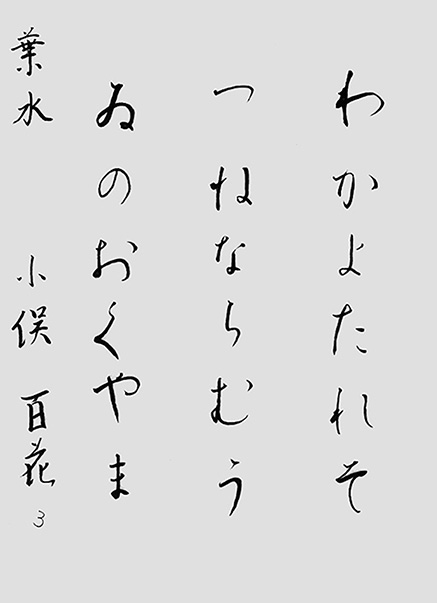 わかよたれそ
つねならむう
ゐのおくやま
葉水 小俣 百花
3